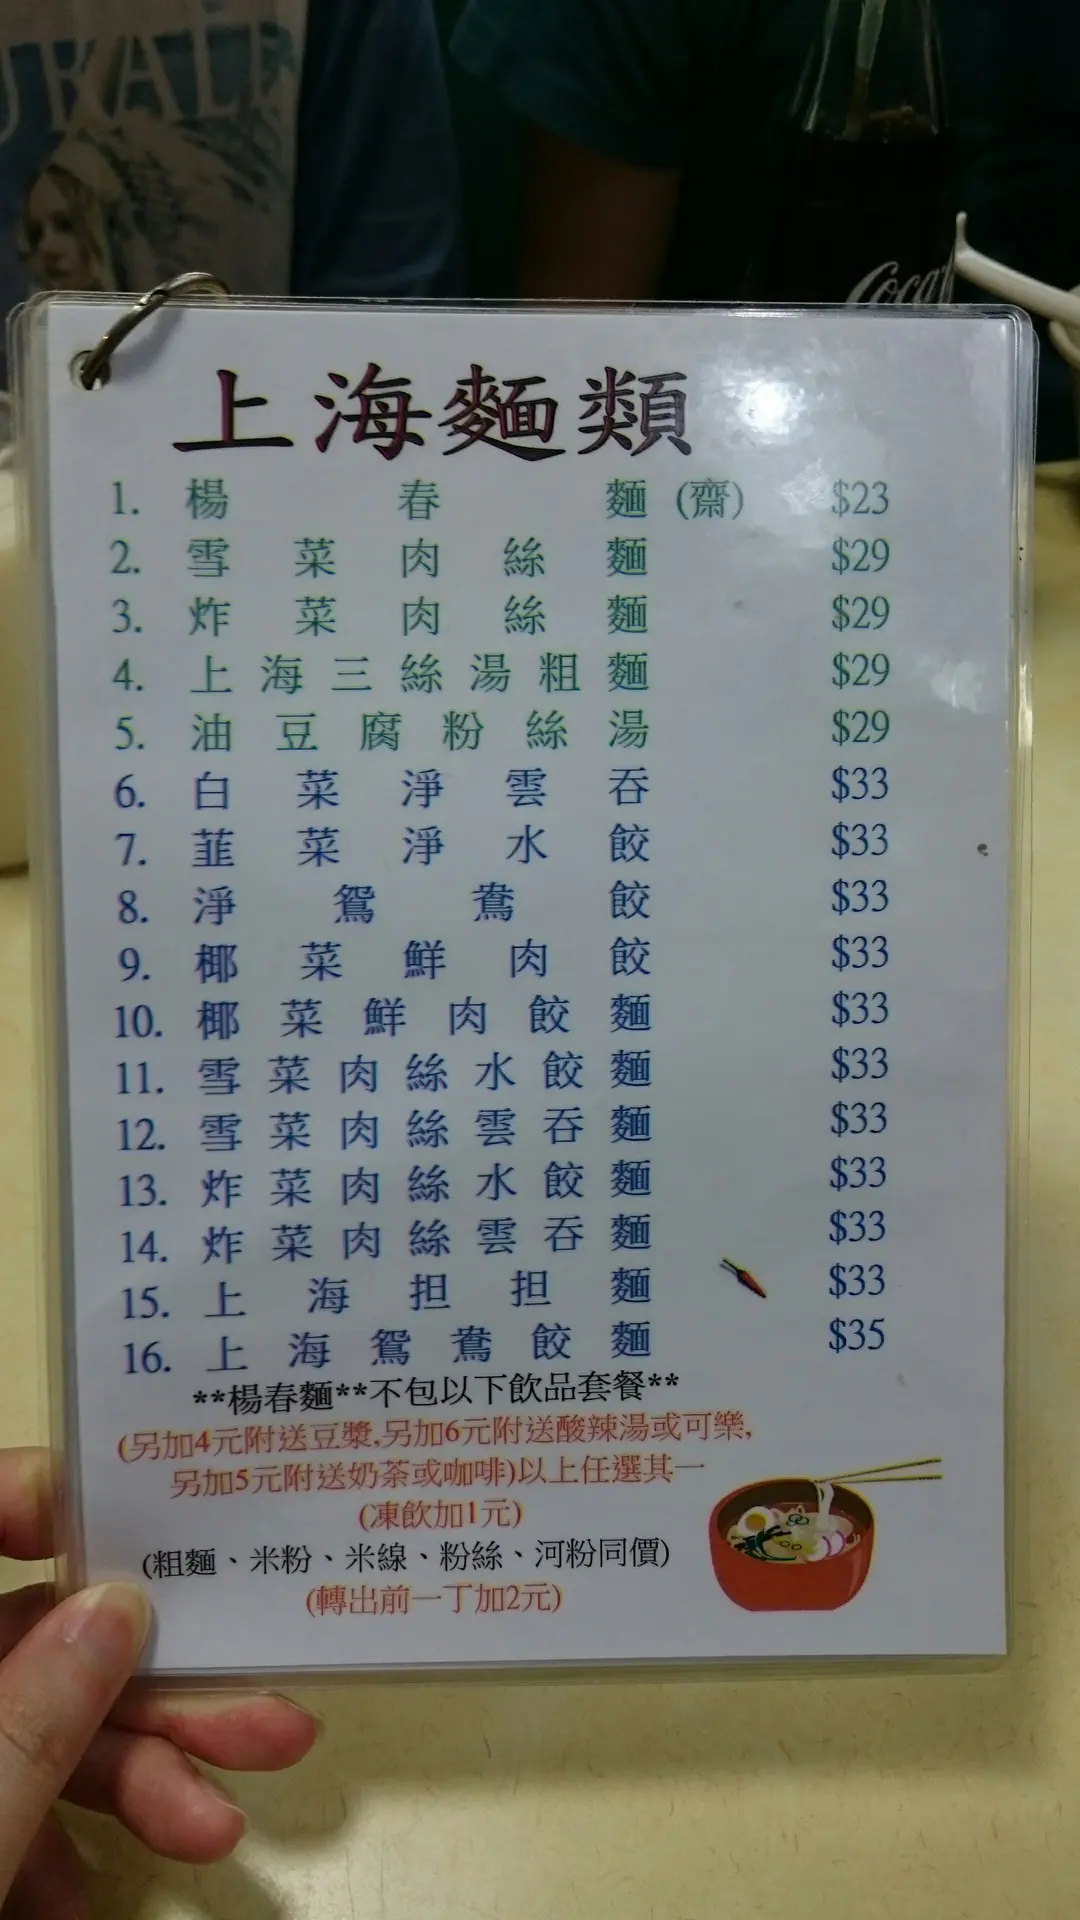 URAL
Coca
上海麵類
1. 楊春麵(齋) $23
2. 雪菜肉絲麵 $29
3. 炸菜肉絲麵 $29
4. 上海三絲湯粗麵 $29
5. 油豆腐粉絲湯 $29
6. 白菜淨雲吞 $33
7. 韮菜淨水餃 $33
8. 淨鴛鴦餃 $33
9. 椰菜鮮肉餃 $33
10. 椰菜鮮肉餃麵 $33
11. 雪菜肉絲水餃麵 $33
12. 雪菜肉絲雲吞麵 $33
13. 炸菜肉絲水餃麵 $33
14. 炸菜肉絲雲吞麵 $33
15. 上海担担麵 $33
16. 上海鴛鴦餃麵 $35
**楊春麵**不包以下飲品套餐**
(另加4元附送豆漿,另加6元附送酸辣湯或可樂,
另加5元附送奶茶或咖啡)以上任選其一
(凍飲加1元)
(粗麵、米粉、米線、粉絲、河粉同價)
(轉出前一丁加2元)